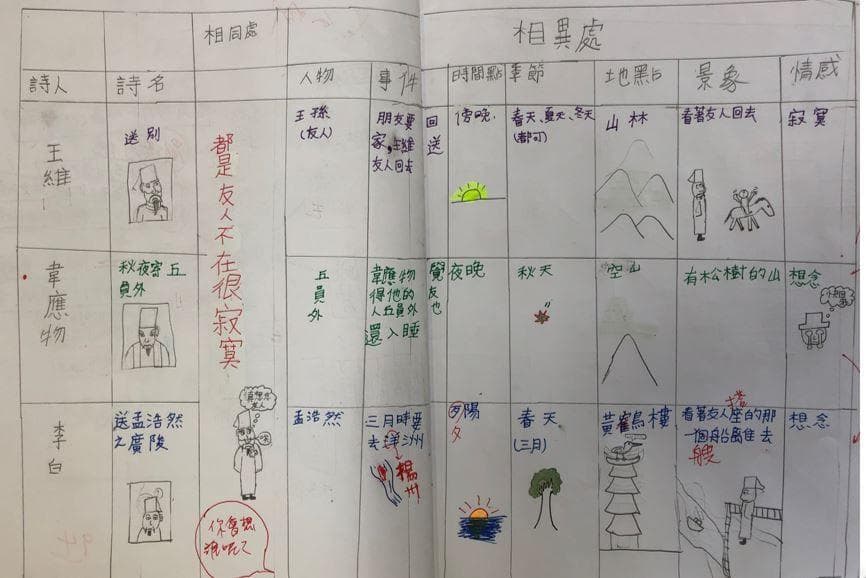 相同處
相異處
詩人
詩名
人物
事件
時間點
季節
地點
景象
情感
王維
送別
都是友人不在很寂寞
王孫
(友人)
朋友要回
家,王維送
友人回去
傍晚
春天、夏天、冬天
(都可)
山林
看著友人回去
寂寞
韋應物
秋夜寄丘
員外
丘員外
韋應物覺
得他的友
人丘員外也
還入睡
夜晚
秋天
空山
有松樹的山
想念
李白
送孟浩然
之廣陵
孟浩然
三月時要
去洋洲
揚州
夕陽
夕
春天
(三月)
黃鶴樓
搭
看著友人座的那
一個船離進去
艘
想念
你會想
誰呢?
94